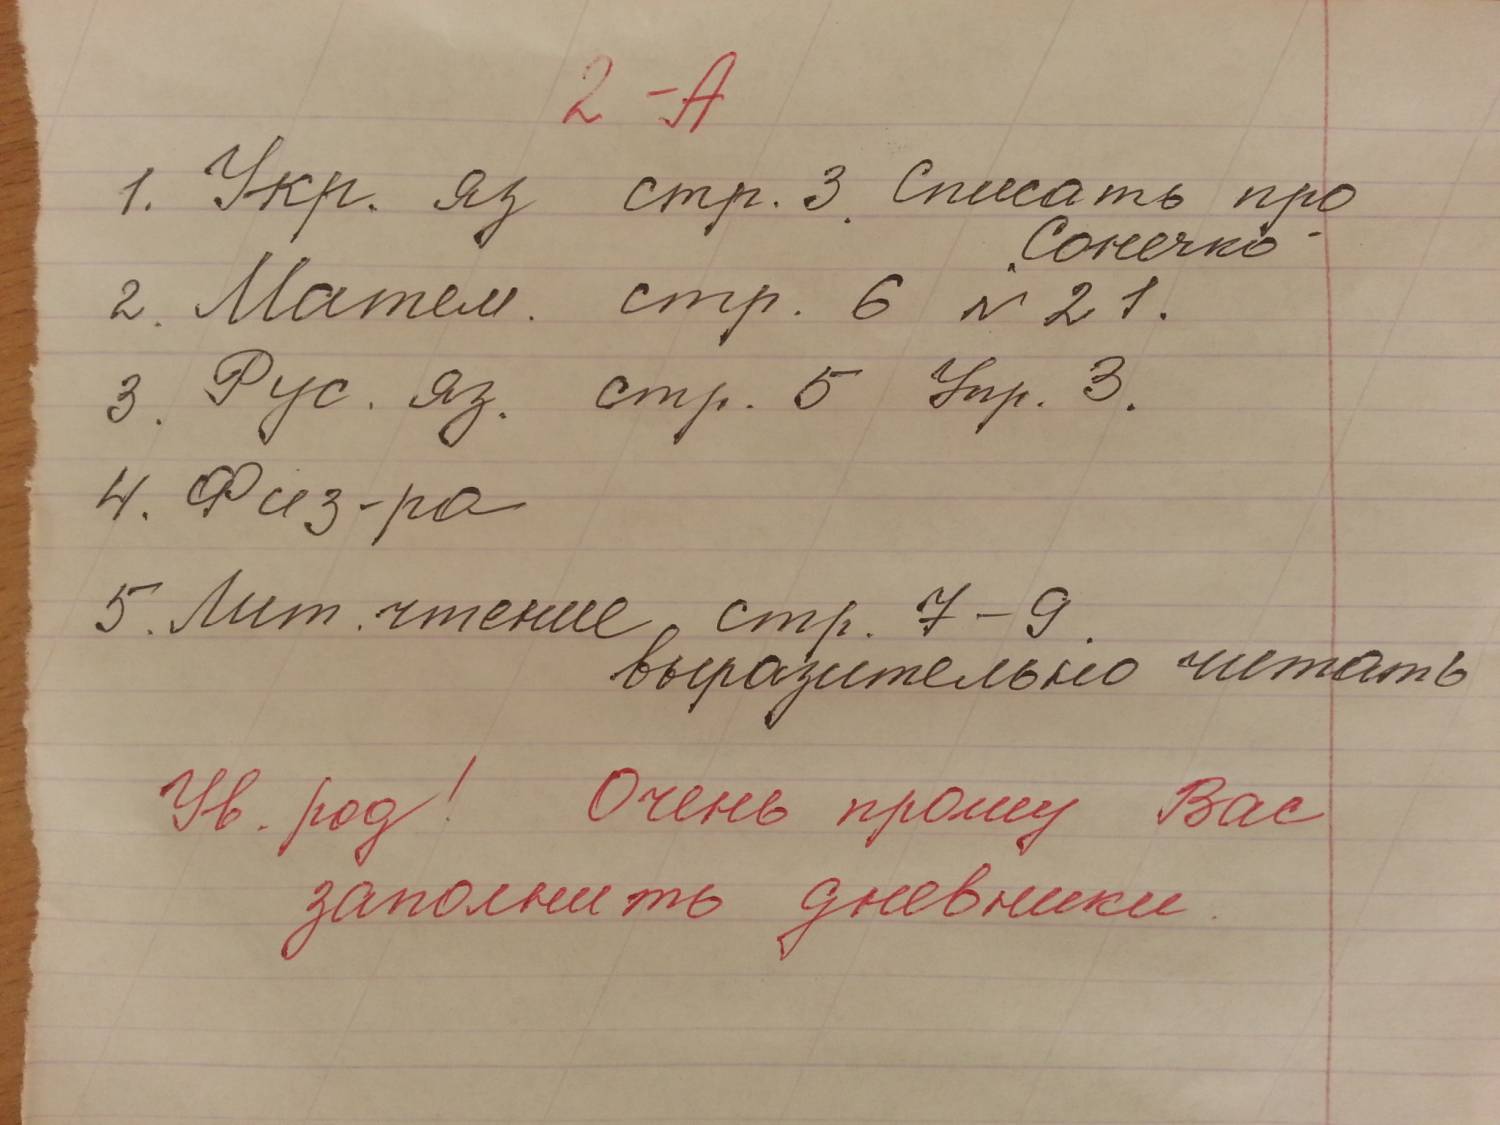 2-А
1. Укр. яз стр. 3. Списать про
Сонечко
2. Матем. стр. 6 № 21.
3. Рус. яз. стр. 5 Упр. 3.
4. Физ-ра
5. Лит. чтение стр. 7-9.
выразительно читать
Ув. род! Очень прошу Вас
заполнить дневники.